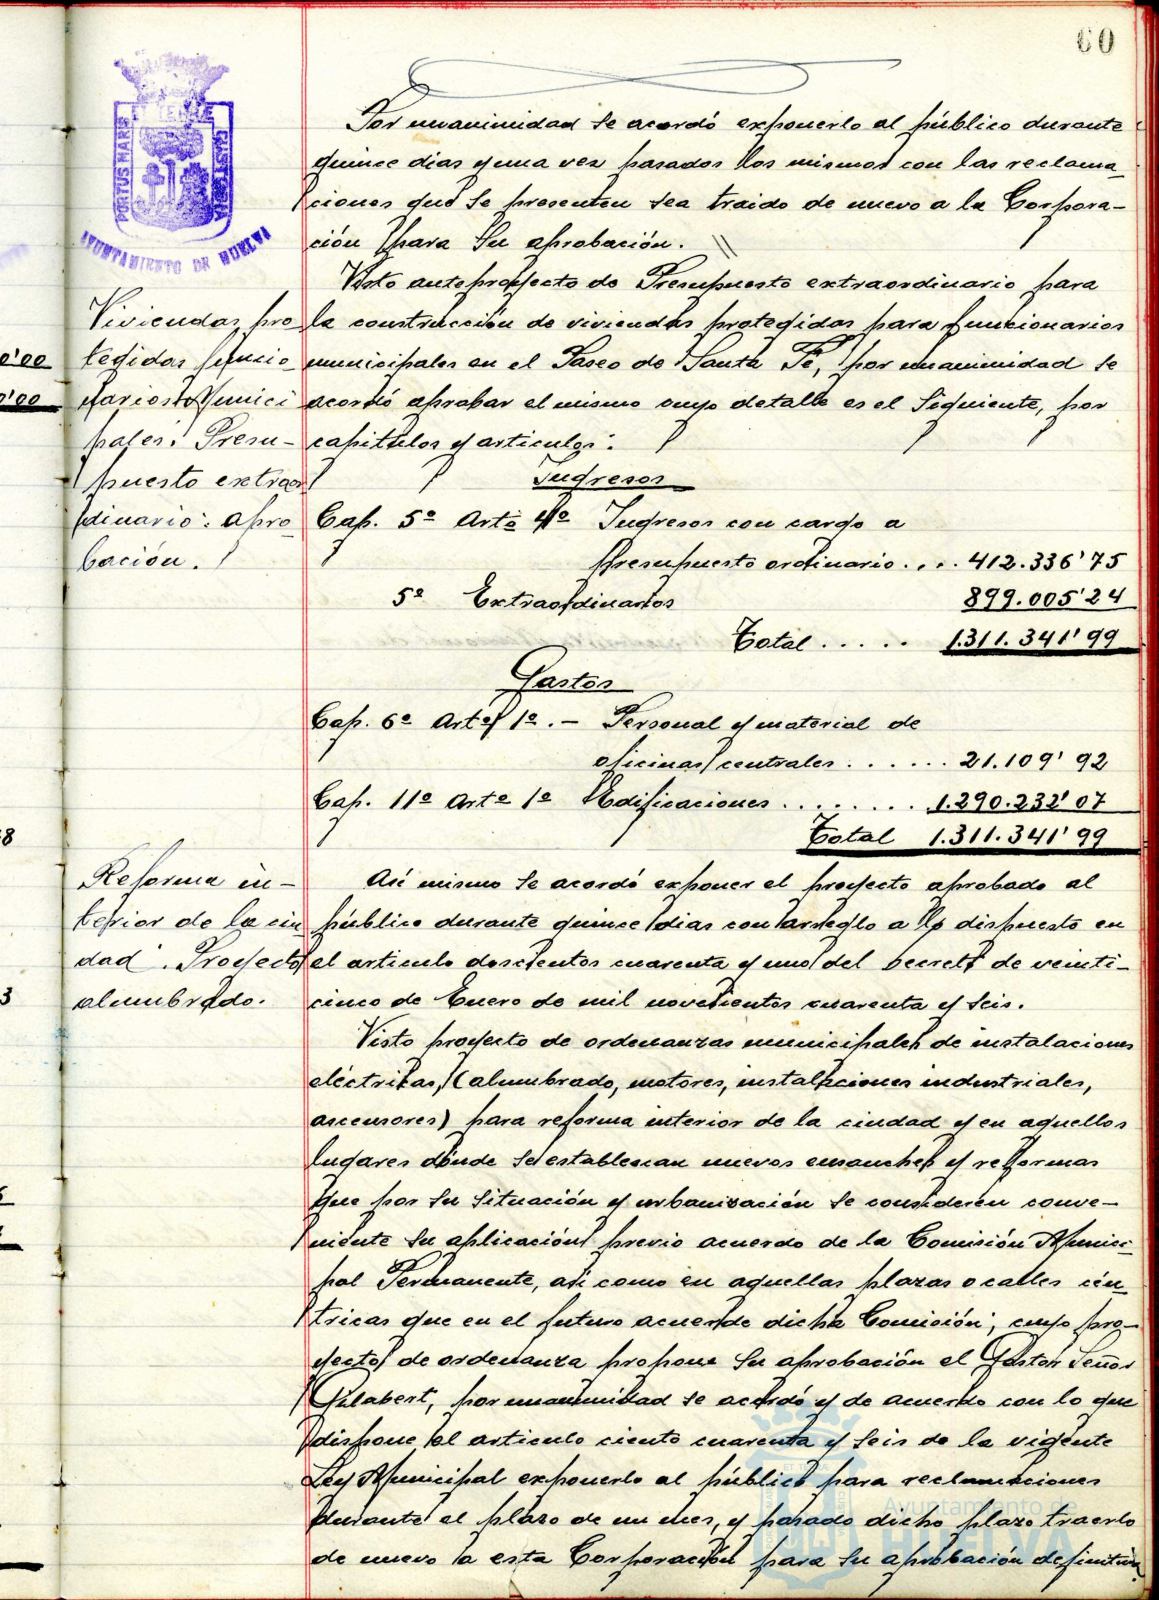 60
PORTUS MARIS
ET TERRE
CUSTODIA
AYUNTAMIENTO DE HUELVA
Por unanimidad se acordó exponerlo al público durante
quince dias y una vez pasados los mismos con las reclama-
ciones que se presenten sea traido de nuevo a la Corpora-
ción para su aprobación.
Viviendas pro-
tegidas funcio-
narios Munici
pales: Presu-
puesto extraor
dinario: apro-
bación.
Visto anteproyecto de Presupuesto extraordinario para
la construcción de viviendas protegidas para funcionarios
municipales en el Paseo de Santa Fé, por unanimidad se
acordó aprobar el mismo cuyo detalle es el siguiente, por
capitulos y articulos:
Ingresos
Cap. 5º Artº 4º Ingresos con cargo a
presupuesto ordinario.... 412.336'75
5º Extraordinarios 899.005'24
Total..... 1.311.341'99
Gastos
Cap. 6º Artº 1º.- Personal y material de
oficinas centrales....... 21.109'92
Cap. 11º Artº 1º Edificaciones......... 1.290.232'07
Total 1.311.341'99
Reforma in-
terior de la ciu
dad. Proyecto
alumbrado.
Asi mismo se acordó exponer el proyecto aprobado al
público durante quince dias con arreglo a lo dispuesto en
el articulo doscientos cuarenta y uno del Decreto de veinti-
cinco de Enero de mil novecientos cuarenta y seis.
Visto proyecto de ordenanzas municipales de instalaciones
eléctricas, (alumbrado, motores, instalaciones industriales,
ascensores) para reforma interior de la ciudad y en aquellos
lugares donde se establezcan nuevos ensanches y reformas
que por su situación y urbanización se consideren conve-
niente su aplicación previo acuerdo de la Comisión Munici-
pal Permanente, asi como en aquellas plazas o calles cén-
tricas que en el futuro acuerde dicha Comisión; cuyo pro-
yecto de ordenanza propone su aprobación el Gestor Señor
Gilabert, por unanimidad se acordó y de acuerdo con lo que
dispone el articulo ciento cuarenta y seis de la vigente
Ley Municipal exponerlo al público para reclamaciones
durante el plazo de un mes, y pasado dicho plazo traerlo
de nuevo a esta Corporación para su aprobación definitiva.
0'00
0'00
8
3
Ayuntamiento de
HUELVA